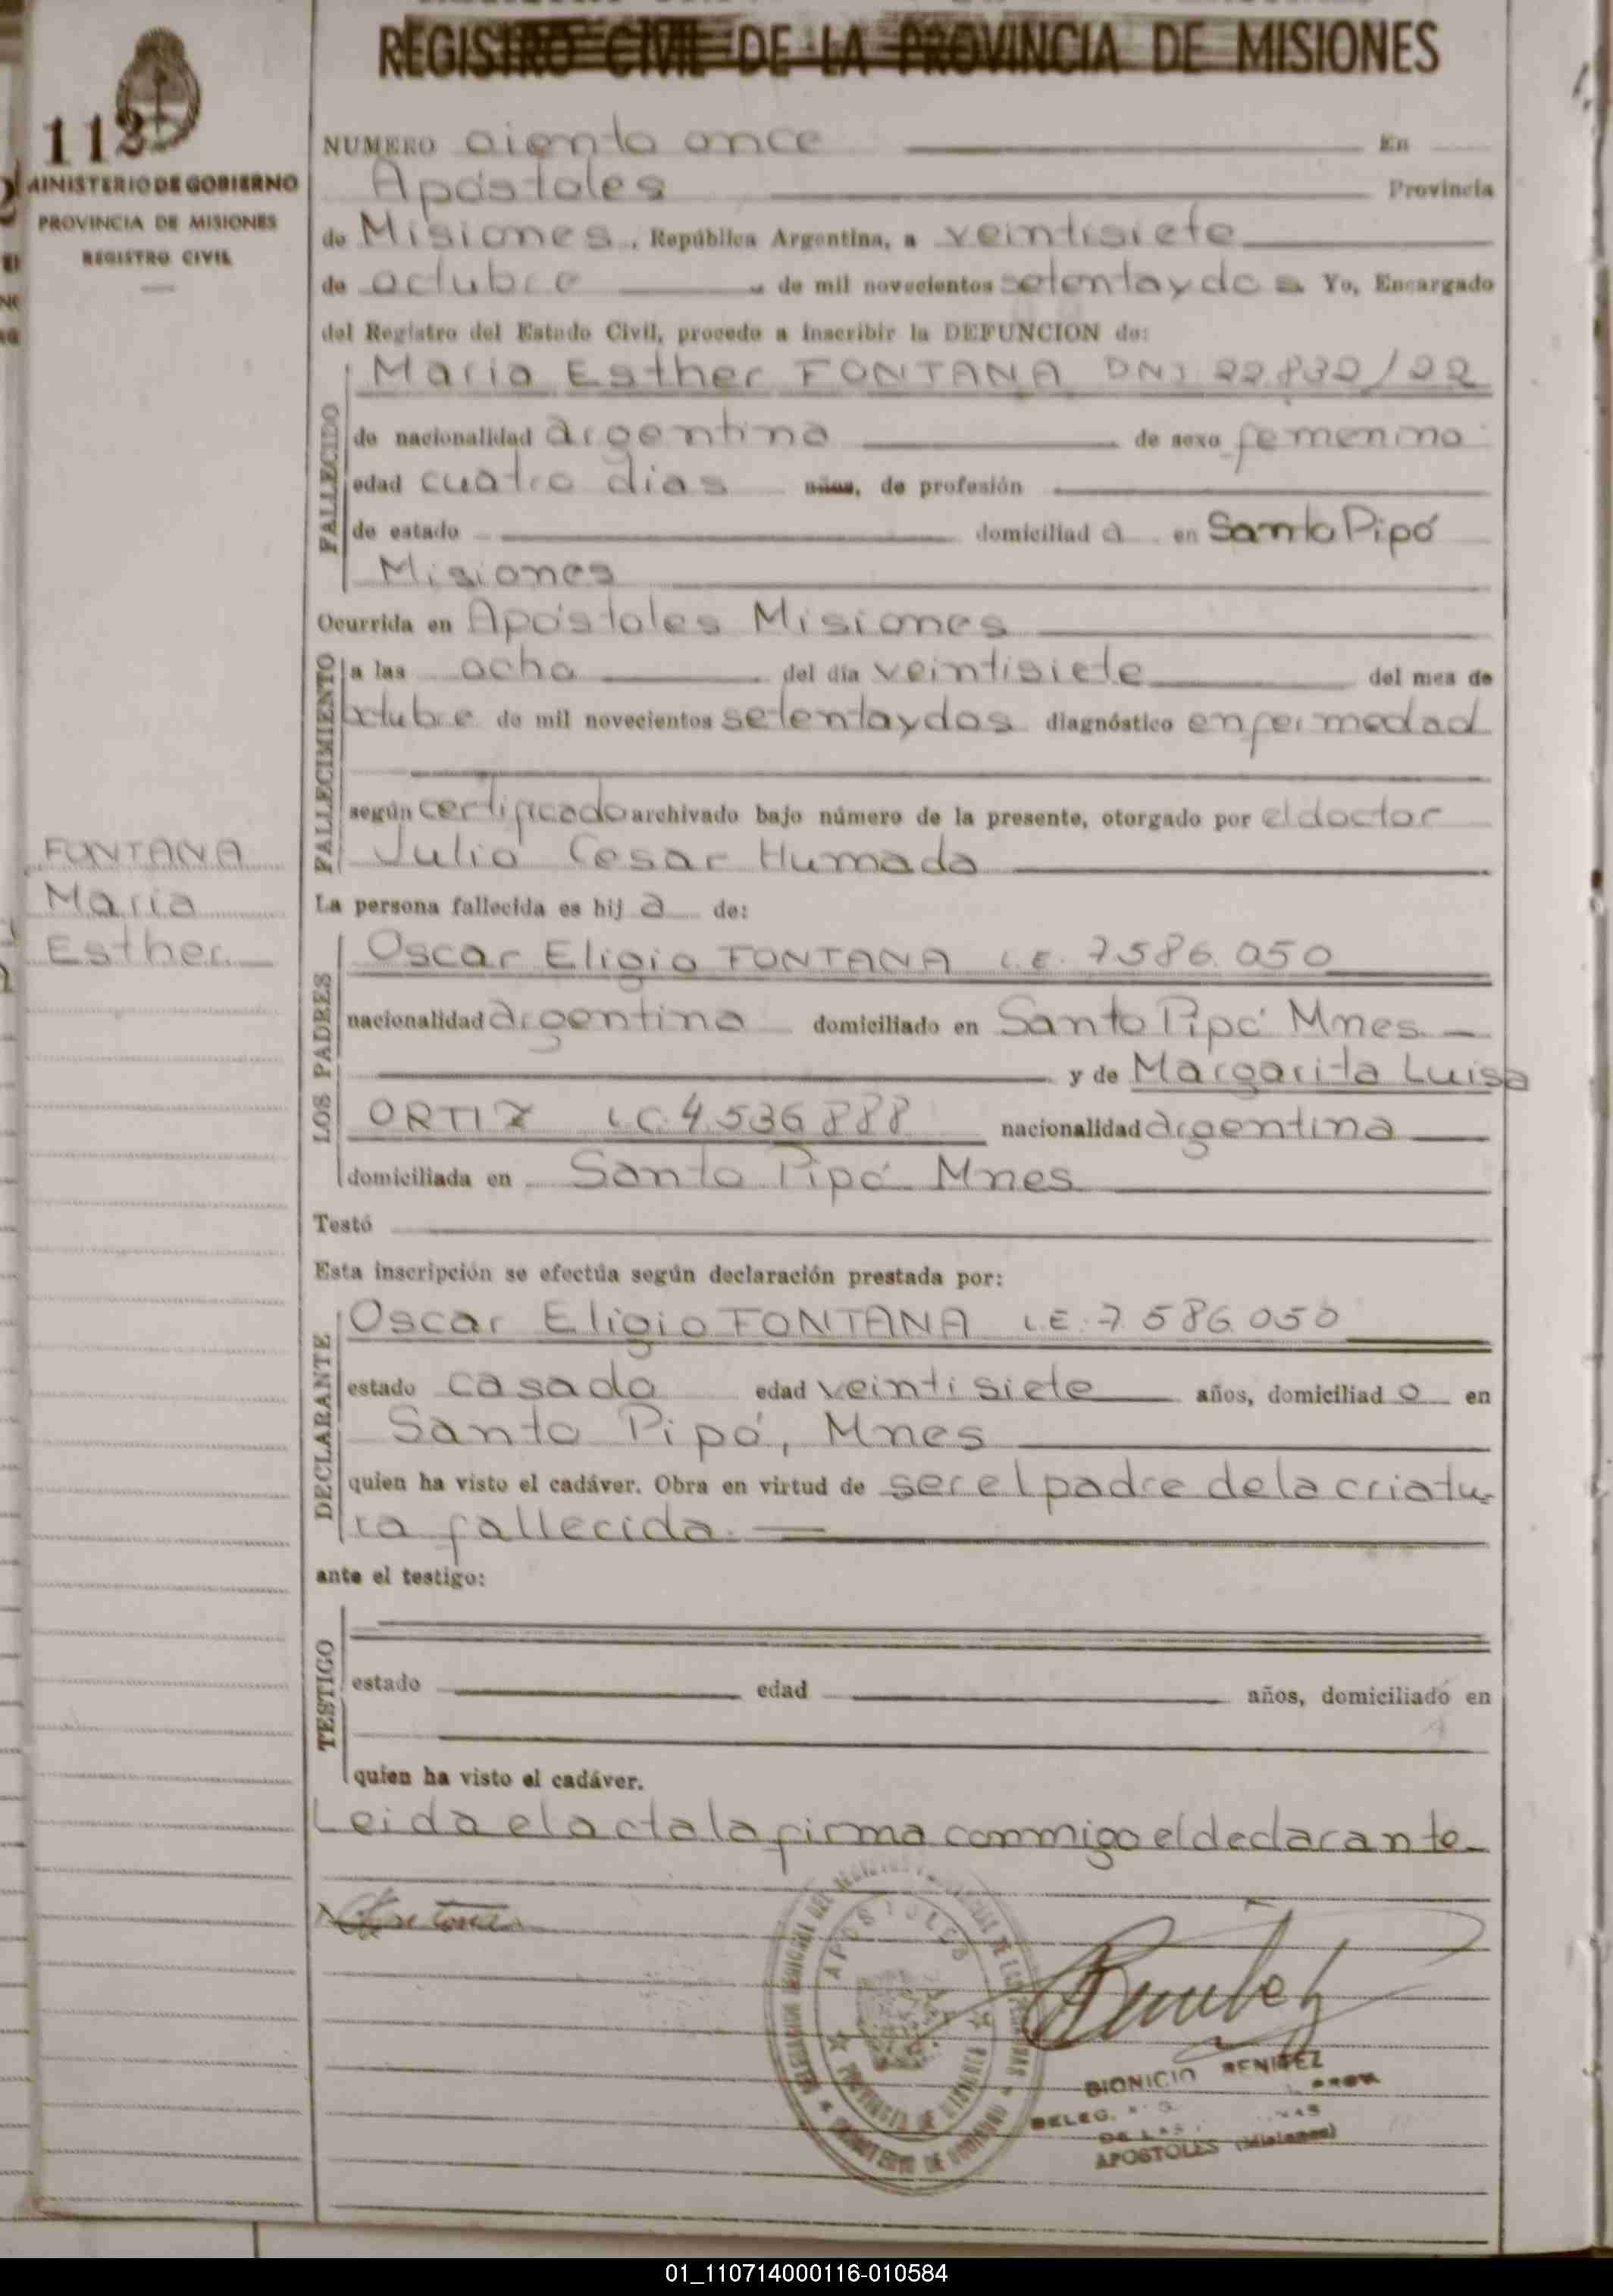 REGISTRO CIVIL DE LA PROVINCIA DE MISIONES
113
MINISTERIO DE GOBIERNO
PROVINCIA DE MISIONES
REGISTRO CIVIL
NUMERO ciento once En
Apóstoles Provincia
de Misiones, República Argentina, a veintisiete
de octubre de mil novecientos setenta y dos Yo, Encargado
del Registro del Estado Civil, procedo a inscribir la DEFUNCION de:
FALLECIDO
Maria Esther FONTANA DNI 22.832/22
de nacionalidad argentina de sexo femenino
edad cuatro dias años, de profesión
de estado domiciliad a en Santo Pipó
Misiones
Ocurrida en Apóstoles Misiones
FALLECIMIENTO
a las ocho del día veintisiete del mes de
octubre de mil novecientos setenta y dos diagnóstico enfermedad
según certificado archivado bajo número de la presente, otorgado por el doctor
Julio Cesar Humada
FONTANA
Maria
Esther
La persona fallecida es hij a de:
LOS PADRES
Oscar Eligio FONTANA L.E. 7.586.050
nacionalidad argentina domiciliado en Santo Pipó Mnes
y de Margarita Luisa
ORTIZ L.C. 4.536.888 nacionalidad argentina
domiciliada en Santo Pipó Mnes
Testó
Esta inscripción se efectúa según declaración prestada por:
DECLARANTE
Oscar Eligio FONTANA L.E. 7.586.050
estado casado edad veintisiete años, domiciliad o en
Santo Pipó, Mnes
quien ha visto el cadáver. Obra en virtud de ser el padre de la criatu-
ra fallecida.
ante el testigo:
TESTIGO
estado edad años, domiciliado en
quien ha visto el cadáver.
Leida el acta la firma conmigo el declarante
APOSTOLES
DIONICIO BENITEZ
DELEG.
APOSTOLES (Misiones)
01_110714000116-010584